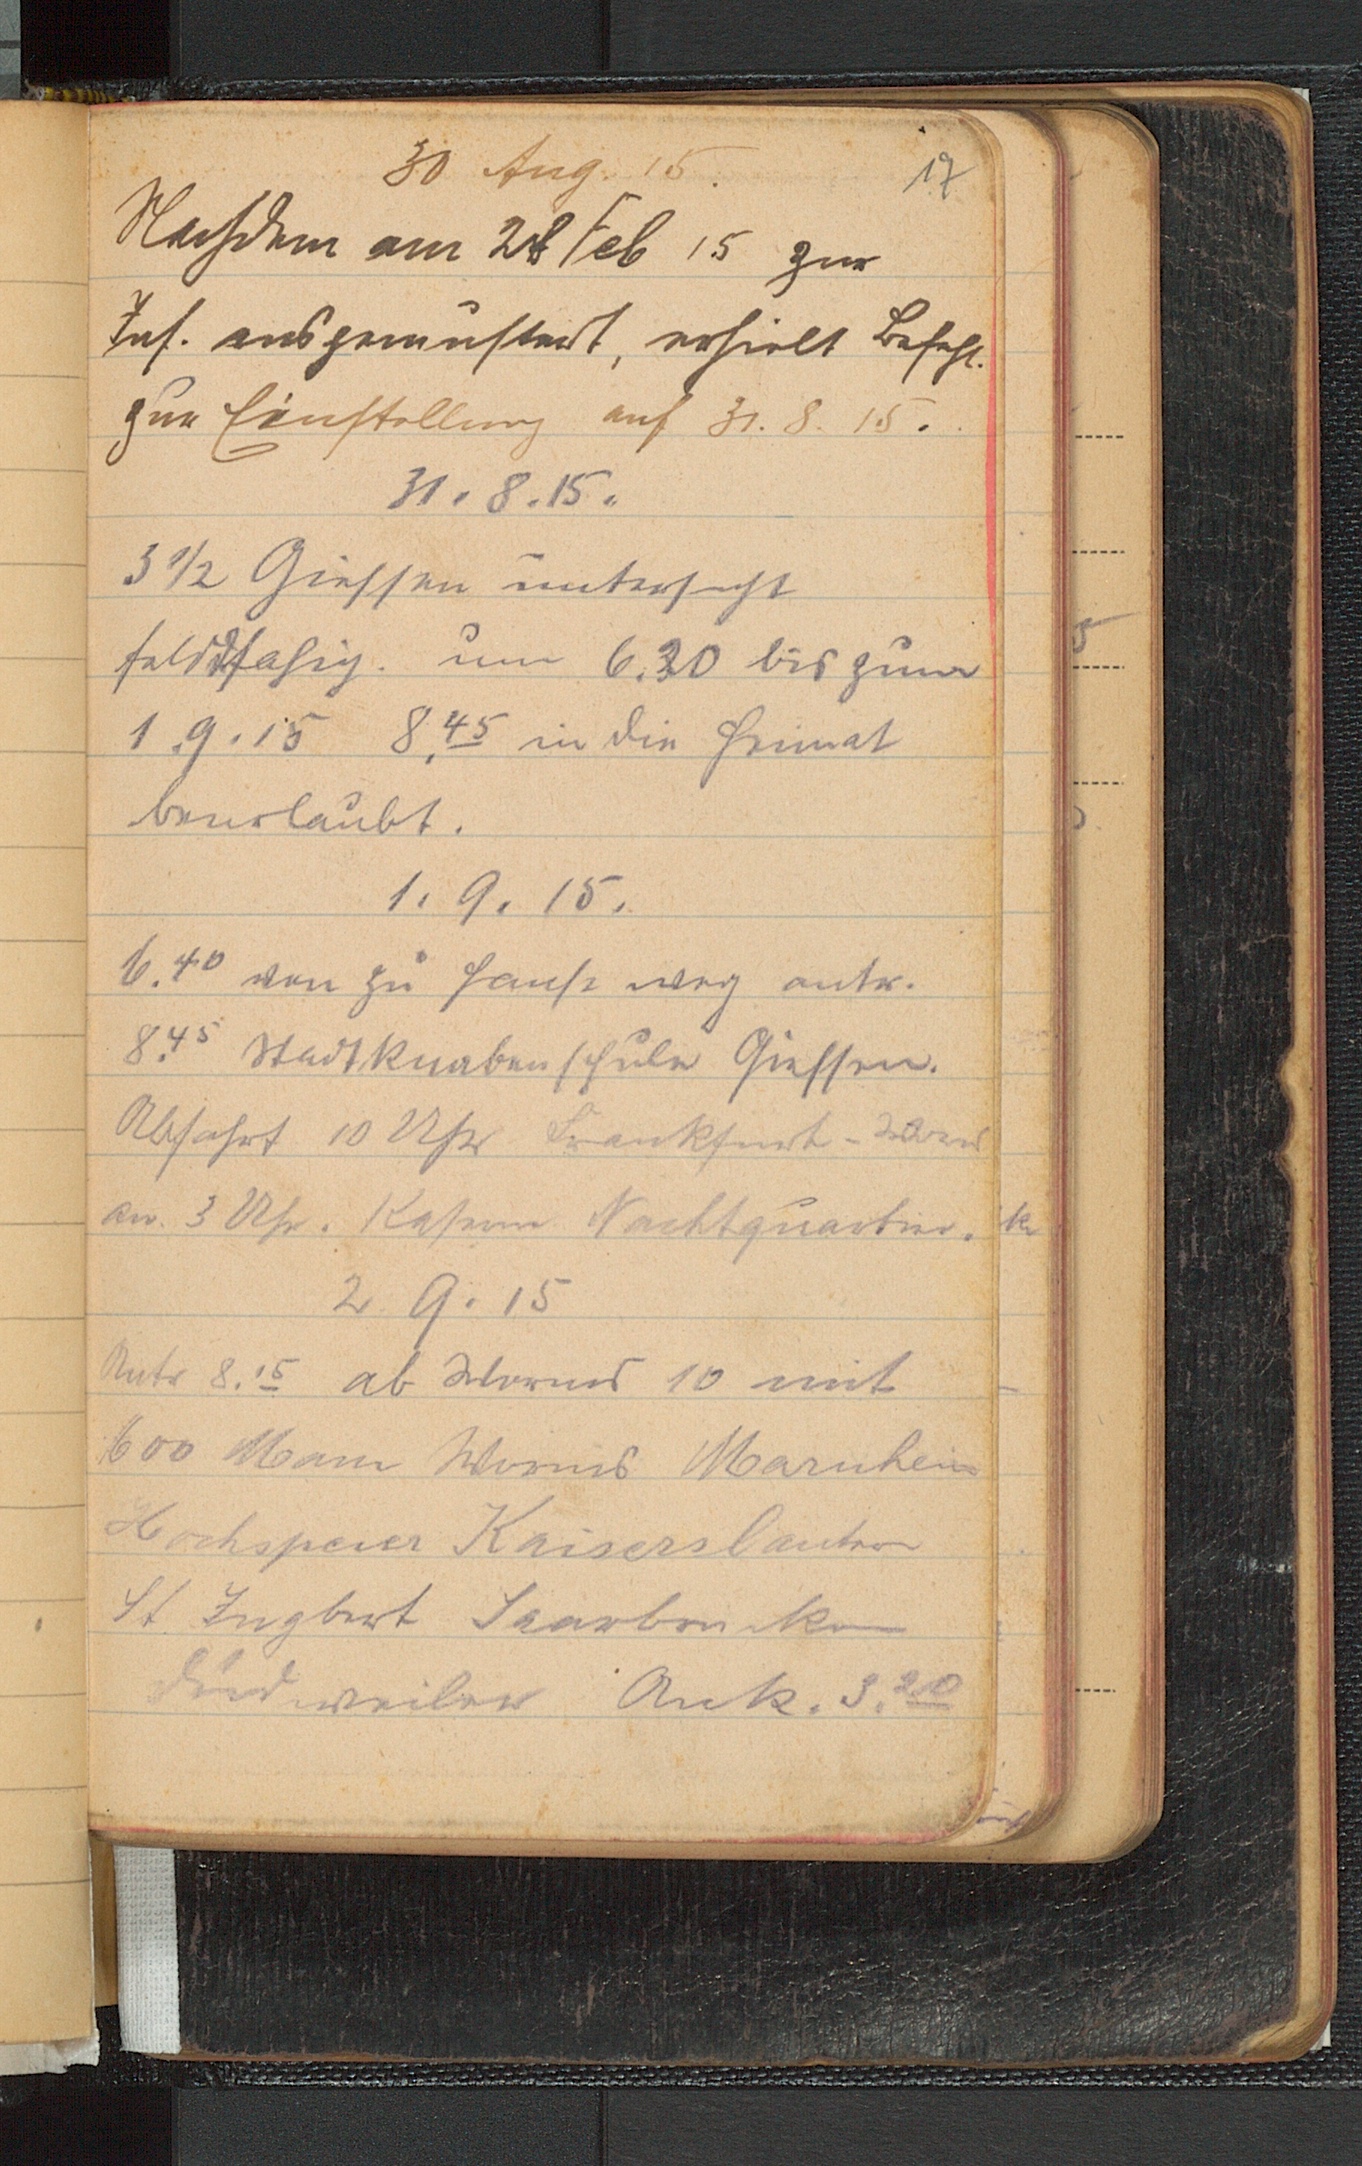 30 Aug. 15.
17
Nachdem am 28 Feb 15 zur
Inf. ausgemustert, erhielt Befehl.
zur Einstellung auf 31. 8. 15.
31. 8. 15.
3 1/2 Giessen untersucht
felddfähig. um 6.30 bis zum
1. 9. 15 8.45 in die Heimat
beurlaubt.
1. 9. 15.
6.40 von zu Hause weg antr.
8.45 Stadtknabenschule Giessen.
Abfahrt 10 Uhr Frankfurt - Worms
an. 3 Uhr. Kaserne Nachtquartier.
2. 9. 15
Antr 8.15 ab Worms 10 mit
600 Mann Worms Marnheim
Hochspeier Kaiserslautern
St Ingbert Saarbrucken
Dudweiler Ank. 3.20